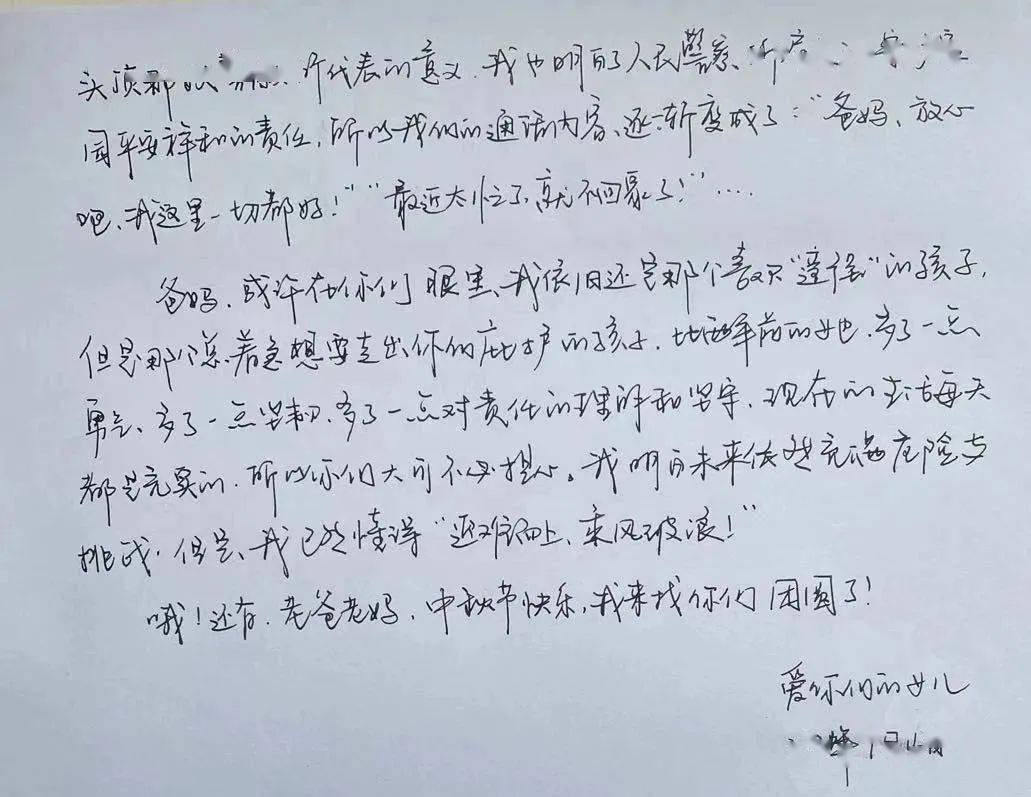 头顶那 所代表的意义，我也明白了人民警察
园平安祥和的责任，所以我们的通话内容，逐渐变成了：“爸妈，放心
吧，我这里一切都好！”“最近太忙了，就不回家了！”....
爸妈，或许在你们眼里，我依旧还是那个喜欢“逞强”的孩子，
但是那个总着急想要走出你们庇护的孩子，比两年前的她，多了一点
勇气，多了一点坚韧，多了一点对责任的理解和坚守，现在的生活每天
都是充实的，所以你们大可不必担心。我明白未来依然充满危险与
挑战，但是，我已然懂得“迎难而上，乘风破浪！”
哦！还有，老爸老妈，中秋节快乐，我来找你们团圆了！
爱你们的女儿